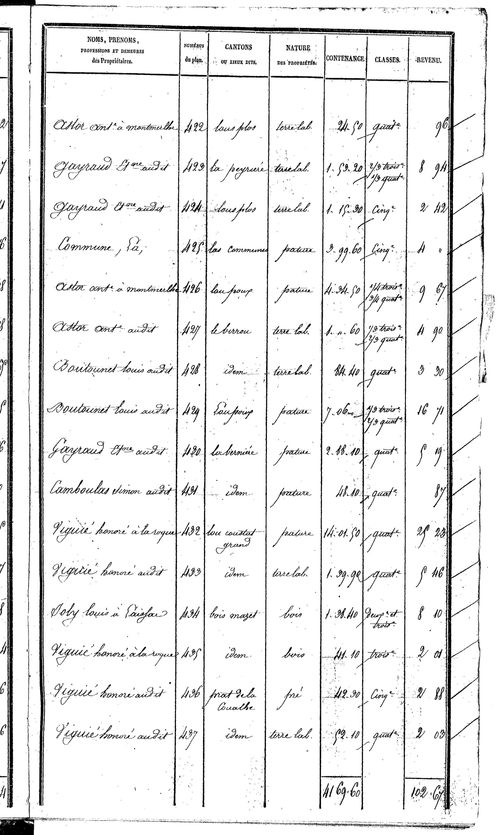 NOMS, PRENOMS, PROFESSIONS ET DEMEURES des Propriétaires. NUMÉROS du plan. CANTONS OU LIEUX DITS. NATURE DES PROPRIÉTÉS. CONTENANCE. CLASSES. REVENU.
astor ant.e à montmerlhe 422 lous plos terre lab. 24.50 quat.e 96
Gayraud Et.ne audit 423 la peyrière terre lab. 1.53.20 1/3 trois.e 2/3 quat.e 8 94
Gayraud Et.ne audit 424 lous plos terre lab. 1.15.30 Cinq.e 2 42
Commune, La, 425 las communes pature 3.99.60 Cinq.e 4 "
astor ant.e à montmerlhe 426 lou poux pature 4.34.50 1/4 trois.e 3/4 quat.e 9 67
astor ant.e audit 427 le birrou terre lab. 1. ". 60 1/3 trois.e 2/3 quat.e 4 90
Boutounet louis audit 428 idem terre lab. 84.40 quat.e 3 30
Boutounet louis audit 429 Lou poux pature 7.06 " 1/3 trois.e 2/3 quat.e 16 71
Gayraud Et.ne audit 430 la bernière pature 2.18.10 quat.e 5 19
Camboulas simon audit 431 idem pature 48.10 quat.e 87
Viguié honoré à la roque 432 lou coustat grand pature 14.01.50 quat.e 25 23
Viguié honoré audit 433 idem terre lab. 1.39.90 quat.e 5 46
louis à 434 bois mazet bois 1.38.40 deux.e et trois.e 8 10
Viguié honoré à la roque 435 idem bois 41.10 trois.e 2 01
Viguié honoré audit 436 prat de la Coualhe pré 42.30 Cinq.e 2 88
Viguié honoré audit 437 idem terre lab. 52.10 quat.e 2 03
41 69.60 102.67